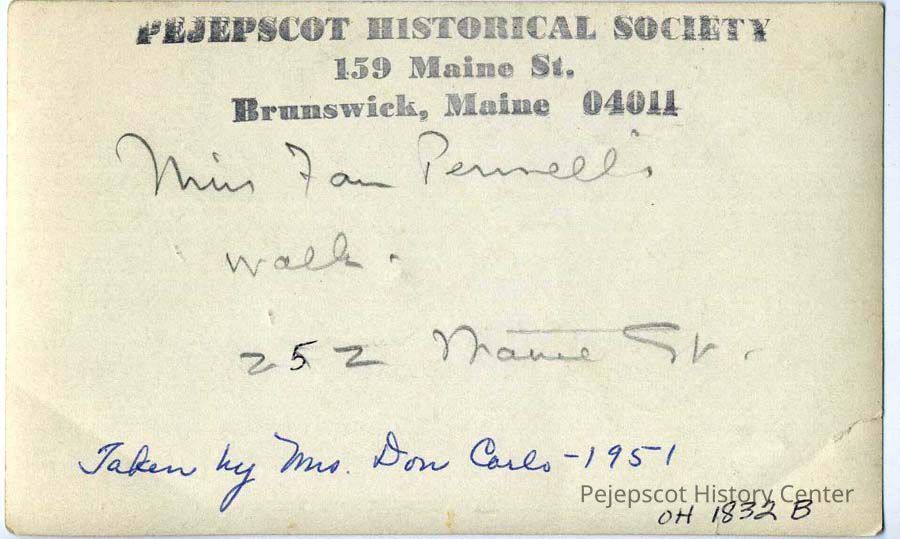 PEJEPSCOT HISTORICAL SOCIETY
159 Maine St.
Brunswick, Maine 04011
Miss Fan Pennell's
walk.
252 Maine St.
Taken by Mrs. Don Carlo - 1951
Pejepscot History Center
OH 1832 B